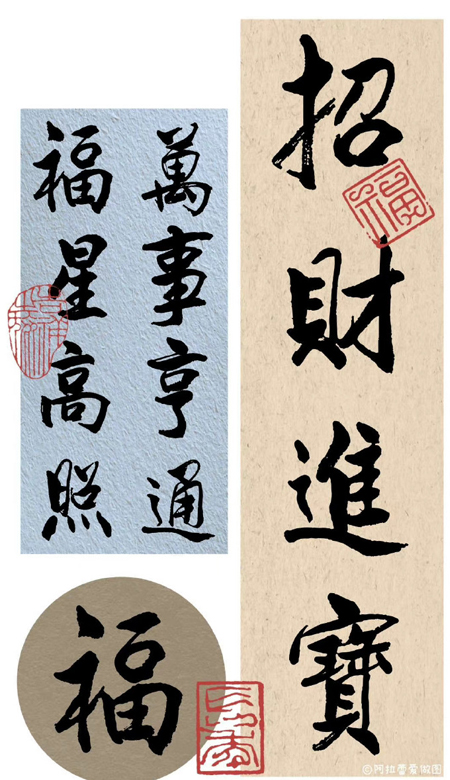 招財進寶
萬事亨通
福星高照
福
福
©阿拉蕾爱做图